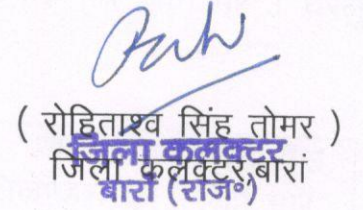 ( रोहिताश्व सिंह तोमर )
जिला कलक्टर
जिला कलेक्टर,बारां
बारां (राज॰)